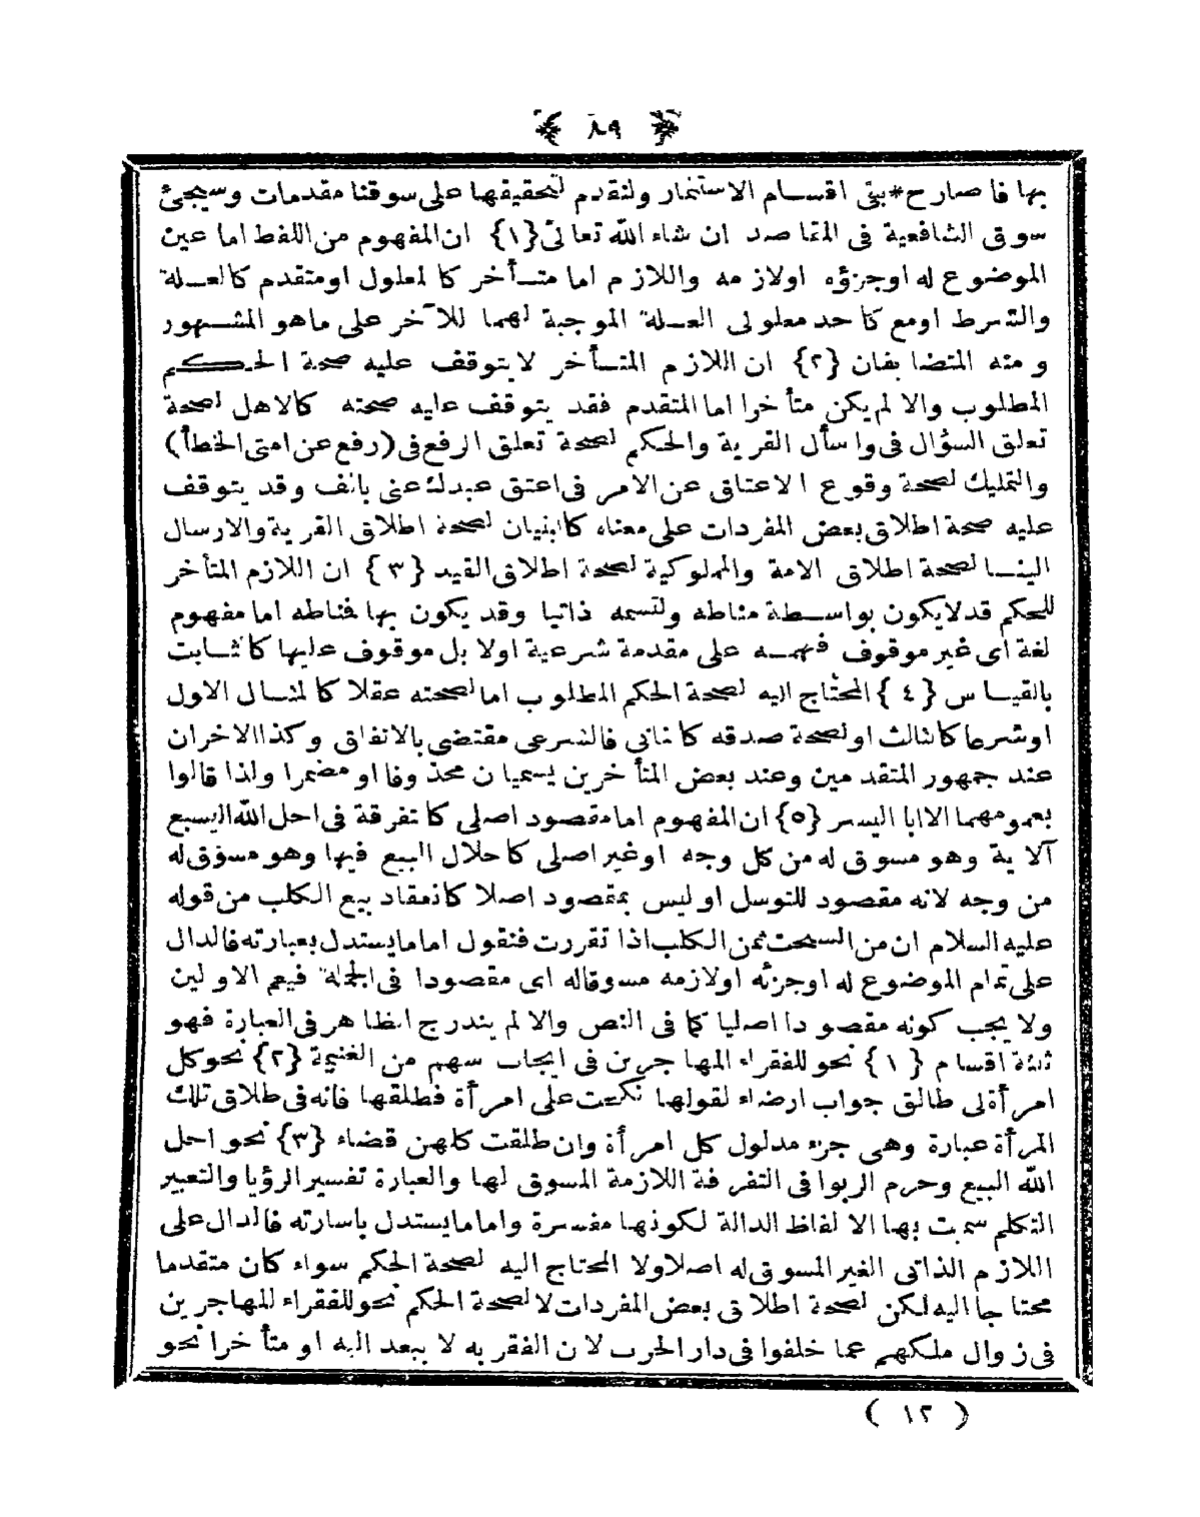 ﴿ ٨٩ ﴾
بها فا صارح * بقى اقسام الاستثمار ولنقدم لتحقيقها على سوقنا مقدمات وسيجئ
سوق الشافعية فى المقاصد ان شاء الله تعالى {١} ان المفهوم من اللفظ اما عين
الموضوع له اوجزؤه اولازمه واللازم اما متأخر كالمعلول اومتقدم كالعلة
والشرط اومع كاحد معلولى العلة الموجبة لهما للآخر على ماهو المشهور
ومنه المتضايفان {٢} ان اللازم المتأخر لايتوقف عليه صحة الحكم
المطلوب والا لم يكن متأخرا اما المتقدم فقد يتوقف عليه صحته كالاهل لصحة
تعلق السؤال فى واسأل القرية والحكم لصحة تعلق الرفع فى (رفع عن امتى الخطأ)
والتمليك لصحة وقوع الاعتاق عن الامر فى اعتق عبدك عنى بالف وقد يتوقف
عليه صحة اطلاق بعض المفردات على معناه كالبنيان لصحة اطلاق القرية والارسال
الينا لصحة اطلاق الامة والمملوكية لصحة اطلاق القيد {٣} ان اللازم المتأخر
للحكم قد لايكون بواسطة مناطه ولنسمه ذاتيا وقد يكون بها فمناطه اما مفهوم
لغة اى غير موقوف فهمه على مقدمة شرعية اولا بل موقوف عليها كالثابت
بالقياس {٤} المحتاج اليه لصحة الحكم المطلوب اما لصحته عقلا كالمثال الاول
اوشرعا كالثالث اولصحة صدقه كالثانى فالشرعى مقتضى بالاتفاق وكذا الاخران
عند جمهور المتقدمين وعند بعض المتأخرين يسميان محذوفا او مضمرا ولذا قالوا
بعمومهما الا ابا اليسر {٥} ان المفهوم اما مقصود اصلى كالتفرقة فى احل الله البيع
الآية وهو مسوق له من كل وجه اوغير اصلى كاحلال البيع فيها وهو مسوق له
من وجه لانه مقصود للتوسل اوليس بمقصود اصلا كانعقاد بيع الكلب من قوله
عليه السلام ان من السحت ثمن الكلب اذا تقررت فنقول اما مايستدل بعبارته فالدال
على تمام الموضوع له اوجزئه اولازمه مسوقاله اى مقصودا فى الجملة فيعم الاولين
ولا يجب كونه مقصودا اصليا كما فى النص والا لم يندرج الظاهر فى العبارة فهو
ثلثة اقسام {١} نحو للفقراء المهاجرين فى ايجاب سهم من الغنيمة {٢} نحو كل
امرأة لى طالق جواب ارضاء لقولها نكحت على امرأة فطلقها فانه فى طلاق تلك
المرأة عبارة وهى جزء مدلول كل امرأة وان طلقت كلهن قضاء {٣} نحو احل
الله البيع وحرم الربوا فى التفرقة اللازمة المسوق لها والعبارة تفسير الرؤيا والتعبير
التكلم سميت بها الالفاظ الدالة لكونها مفسرة واما مايستدل باشارته فالدال على
اللازم الذاتى الغير المسوق له اصلا ولا المحتاج اليه لصحة الحكم سواء كان متقدما
محتاجا اليه لكن لصحة اطلاق بعض المفردات لا لصحة الحكم نحو للفقراء المهاجرين
فى زوال ملكهم عما خلفوا فى دار الحرب لان الفقر به لا ببعد اليد او متأخرا نحو
( ١٢ )